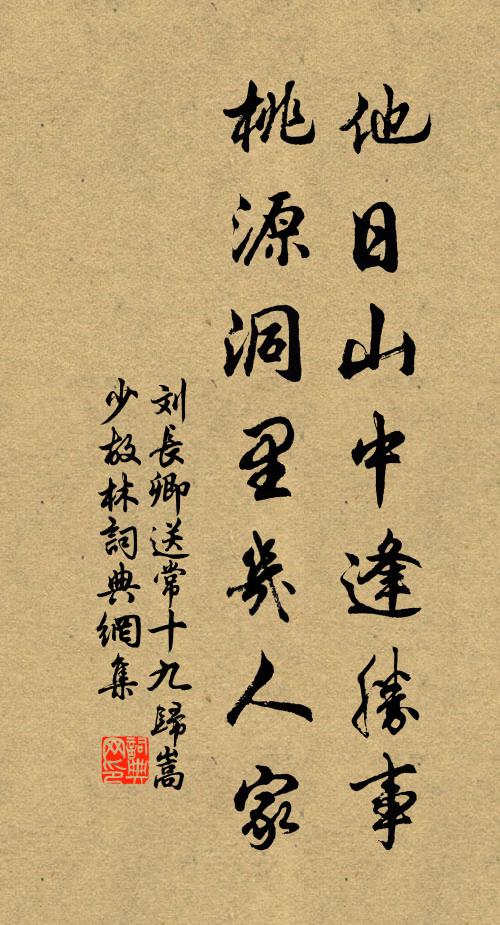 他日山中逢勝事
桃源洞里幾人家
刘長卿送常十九歸嵩
少故林詞典網集
詞典
网印